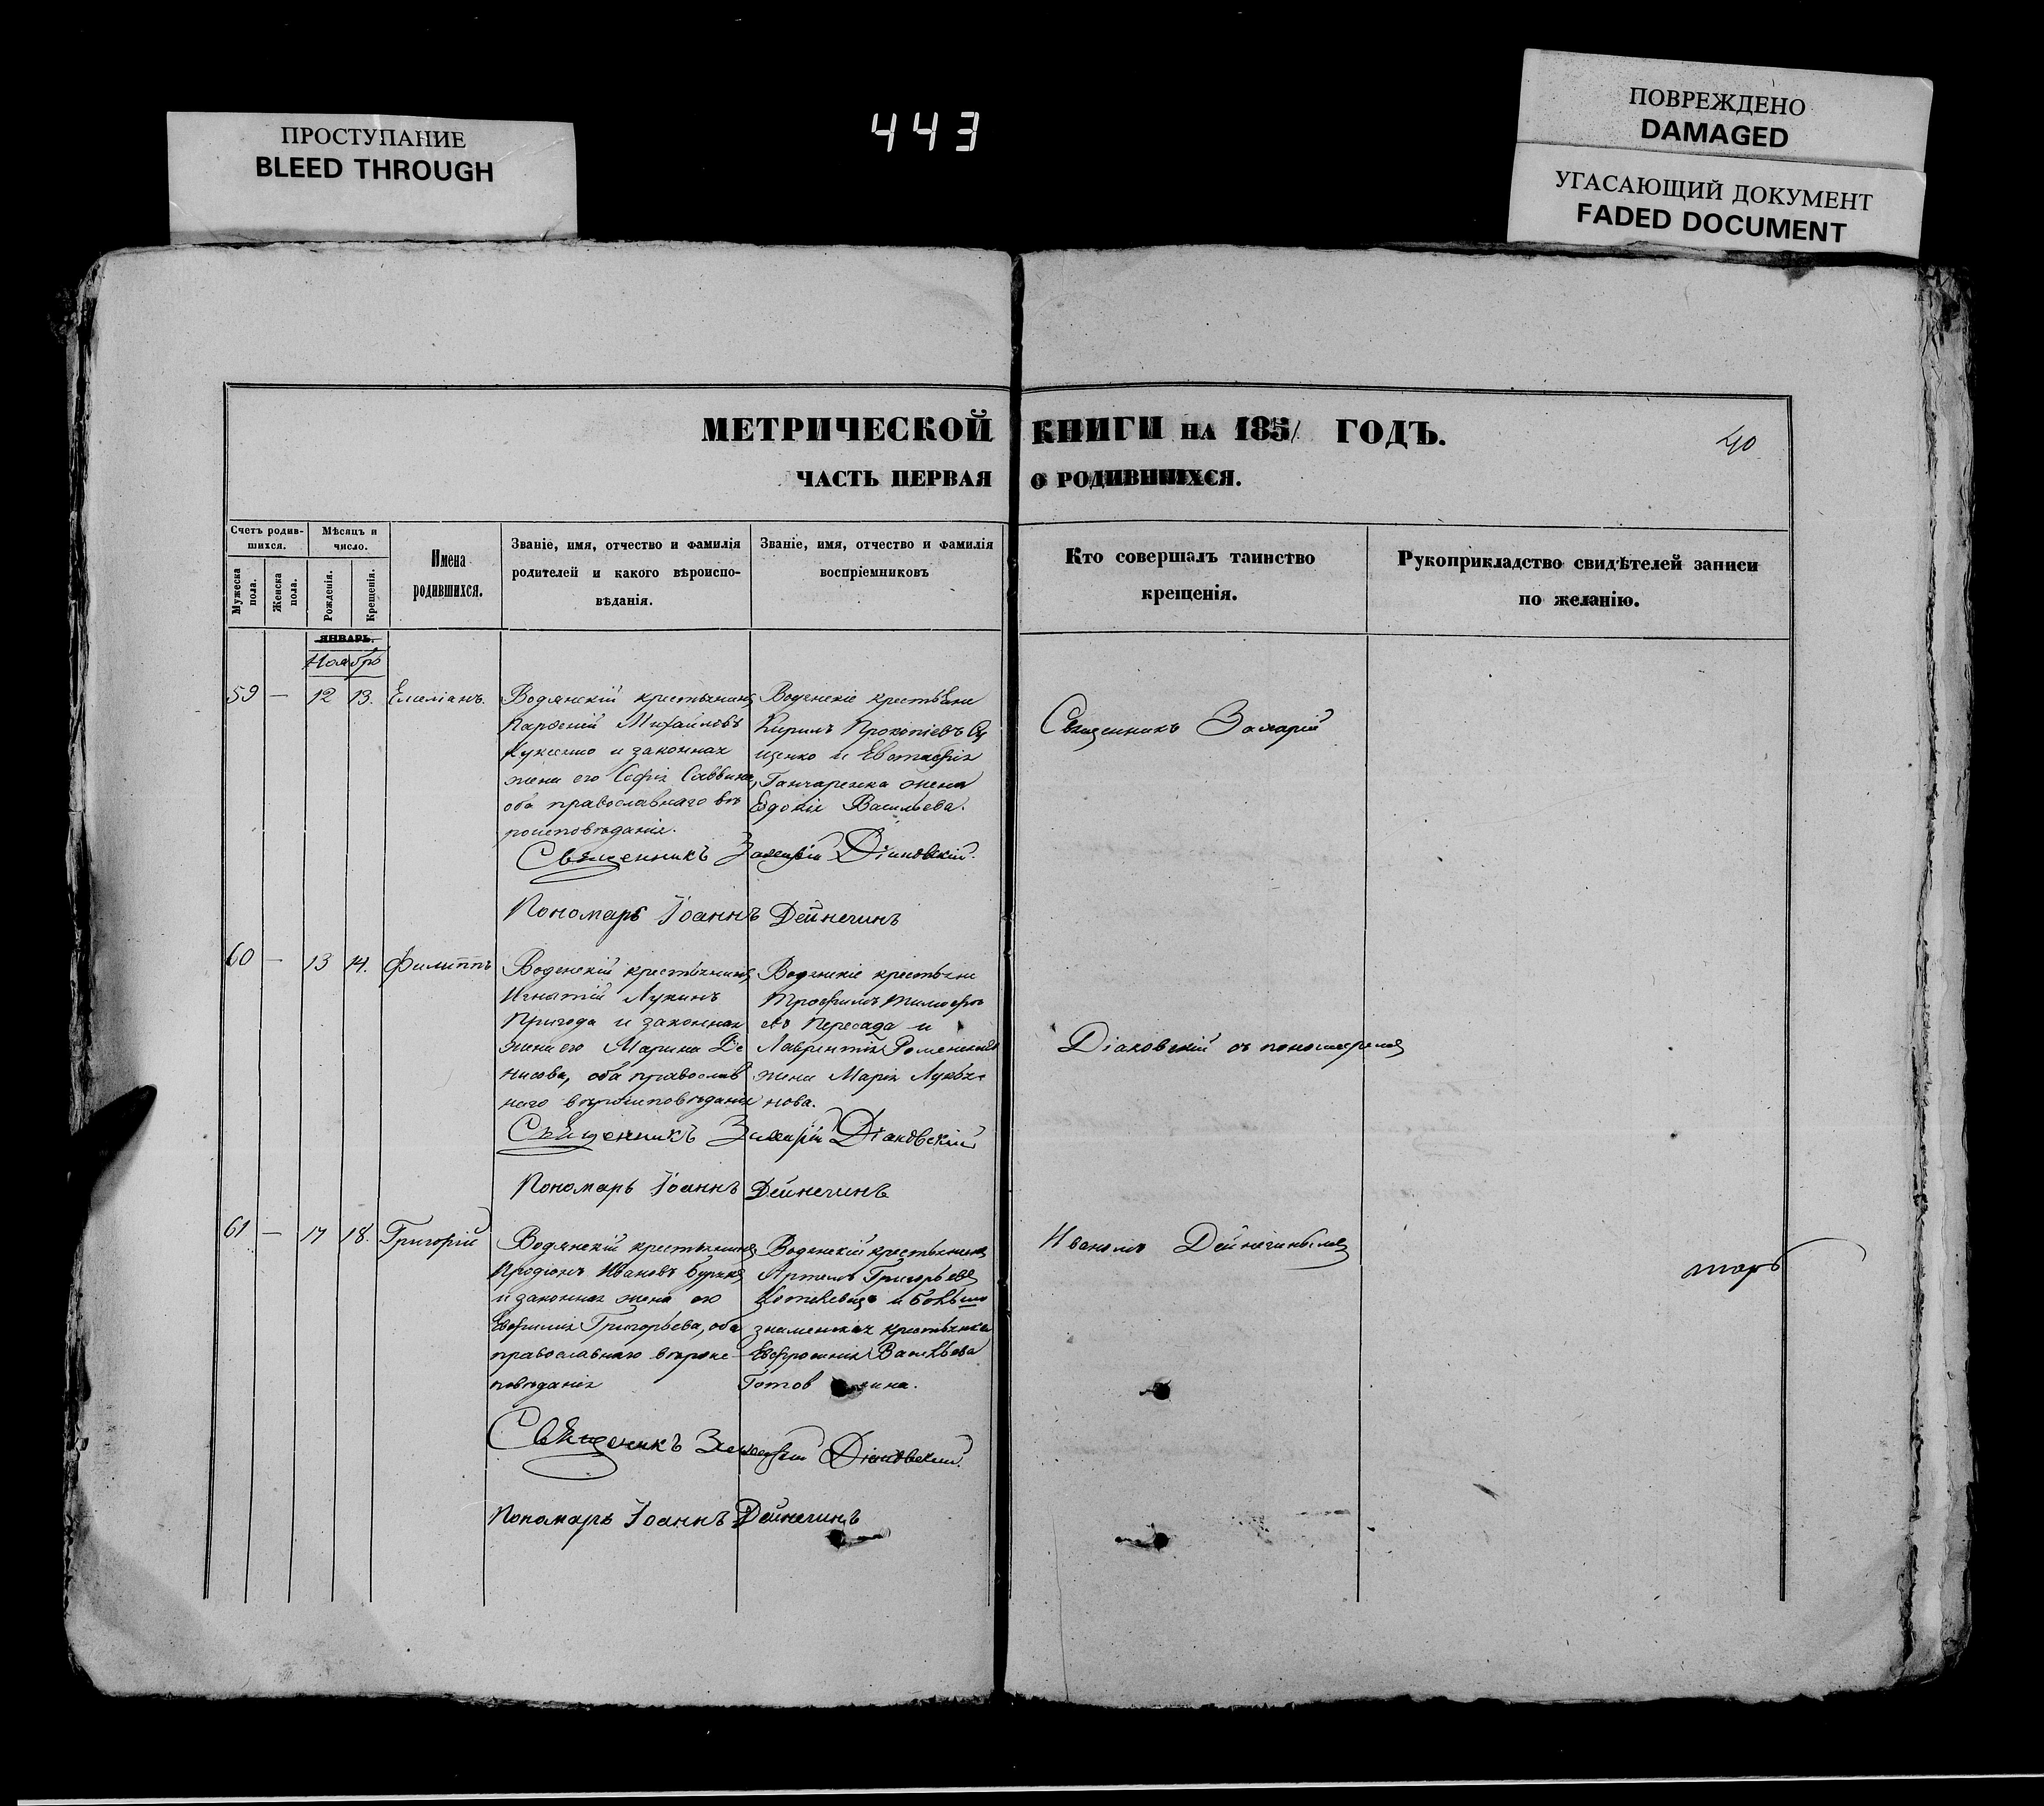 ПРОСТУПАНИЕ
BLEED THROUGH
443
ПОВРЕЖДЕНО
DAMAGED
УГАСАЮЩИЙ ДОКУМЕНТ
FADED DOCUMENT
МЕТРИЧЕСКОЙ КНИГИ НА 1851 ГОДЪ.
40
ЧАСТЬ ПЕРВАЯ О РОДИВШИХСЯ.
Счетъ родив-
шихся.
Мужеска пола.
Женска пола.
Мѣсяцъ и
число.
Рожденія.
Крещенія.
Имена
родившихся.
Званіе, имя, отчество и фамилія
родителей и какого вѣроиспо-
вѣданія.
Званіе, имя, отчество и фамилія
воспріемниковъ
Кто совершалъ таинство
крещенія.
Рукоприкладство свидѣтелей записи
по желанію.
ЯНВАРЬ.
Ноябрь
59 — 12 13. Емеліанъ.
Водянскій крестьянинъ
Михайловъ
и законная
жена его Софія Саввина,
оба православнаго вѣ
роисповѣданія.
Водянскіе крестьяне
Кирилъ Прокопіевъ
и
Ганчаренка жена
Васильева.
Священникъ Захарій
Священникъ Захарій Діаковскій.
Пономарь Іоаннъ Дейнегинъ
60 — 13 14. Филиппъ
Водянскій крестьянинъ
Игнатій Лукинъ
Пригода и законная
жена его Марина Де
нисова, оба православ
наго вѣроисповѣданія
Водянскіе крестьяне
Трофимъ Тимофѣе
въ Пересада и
Лаврентія
жена Марія Лукья
нова.
Діаковскій съ пономаремъ
Священникъ Захарій Діаковскій
Пономарь Іоаннъ Дейнегинъ
61 — 17 18. Григорій
Водянскій крестьянинъ
Иродіонъ Ивановъ
и законная жена его
Евфимія Григорьева, оба
православнаго вѣроис
повѣданія
Водянскій крестьянинъ
Артемъ Григорьевъ
и
знаменская крестьянка
Евфросинія Васильева
Иваномъ Дейнегинымъ
марь
Священикъ Захарій Діаковскій.
Пономарь Іоаннъ Дейнегинъ